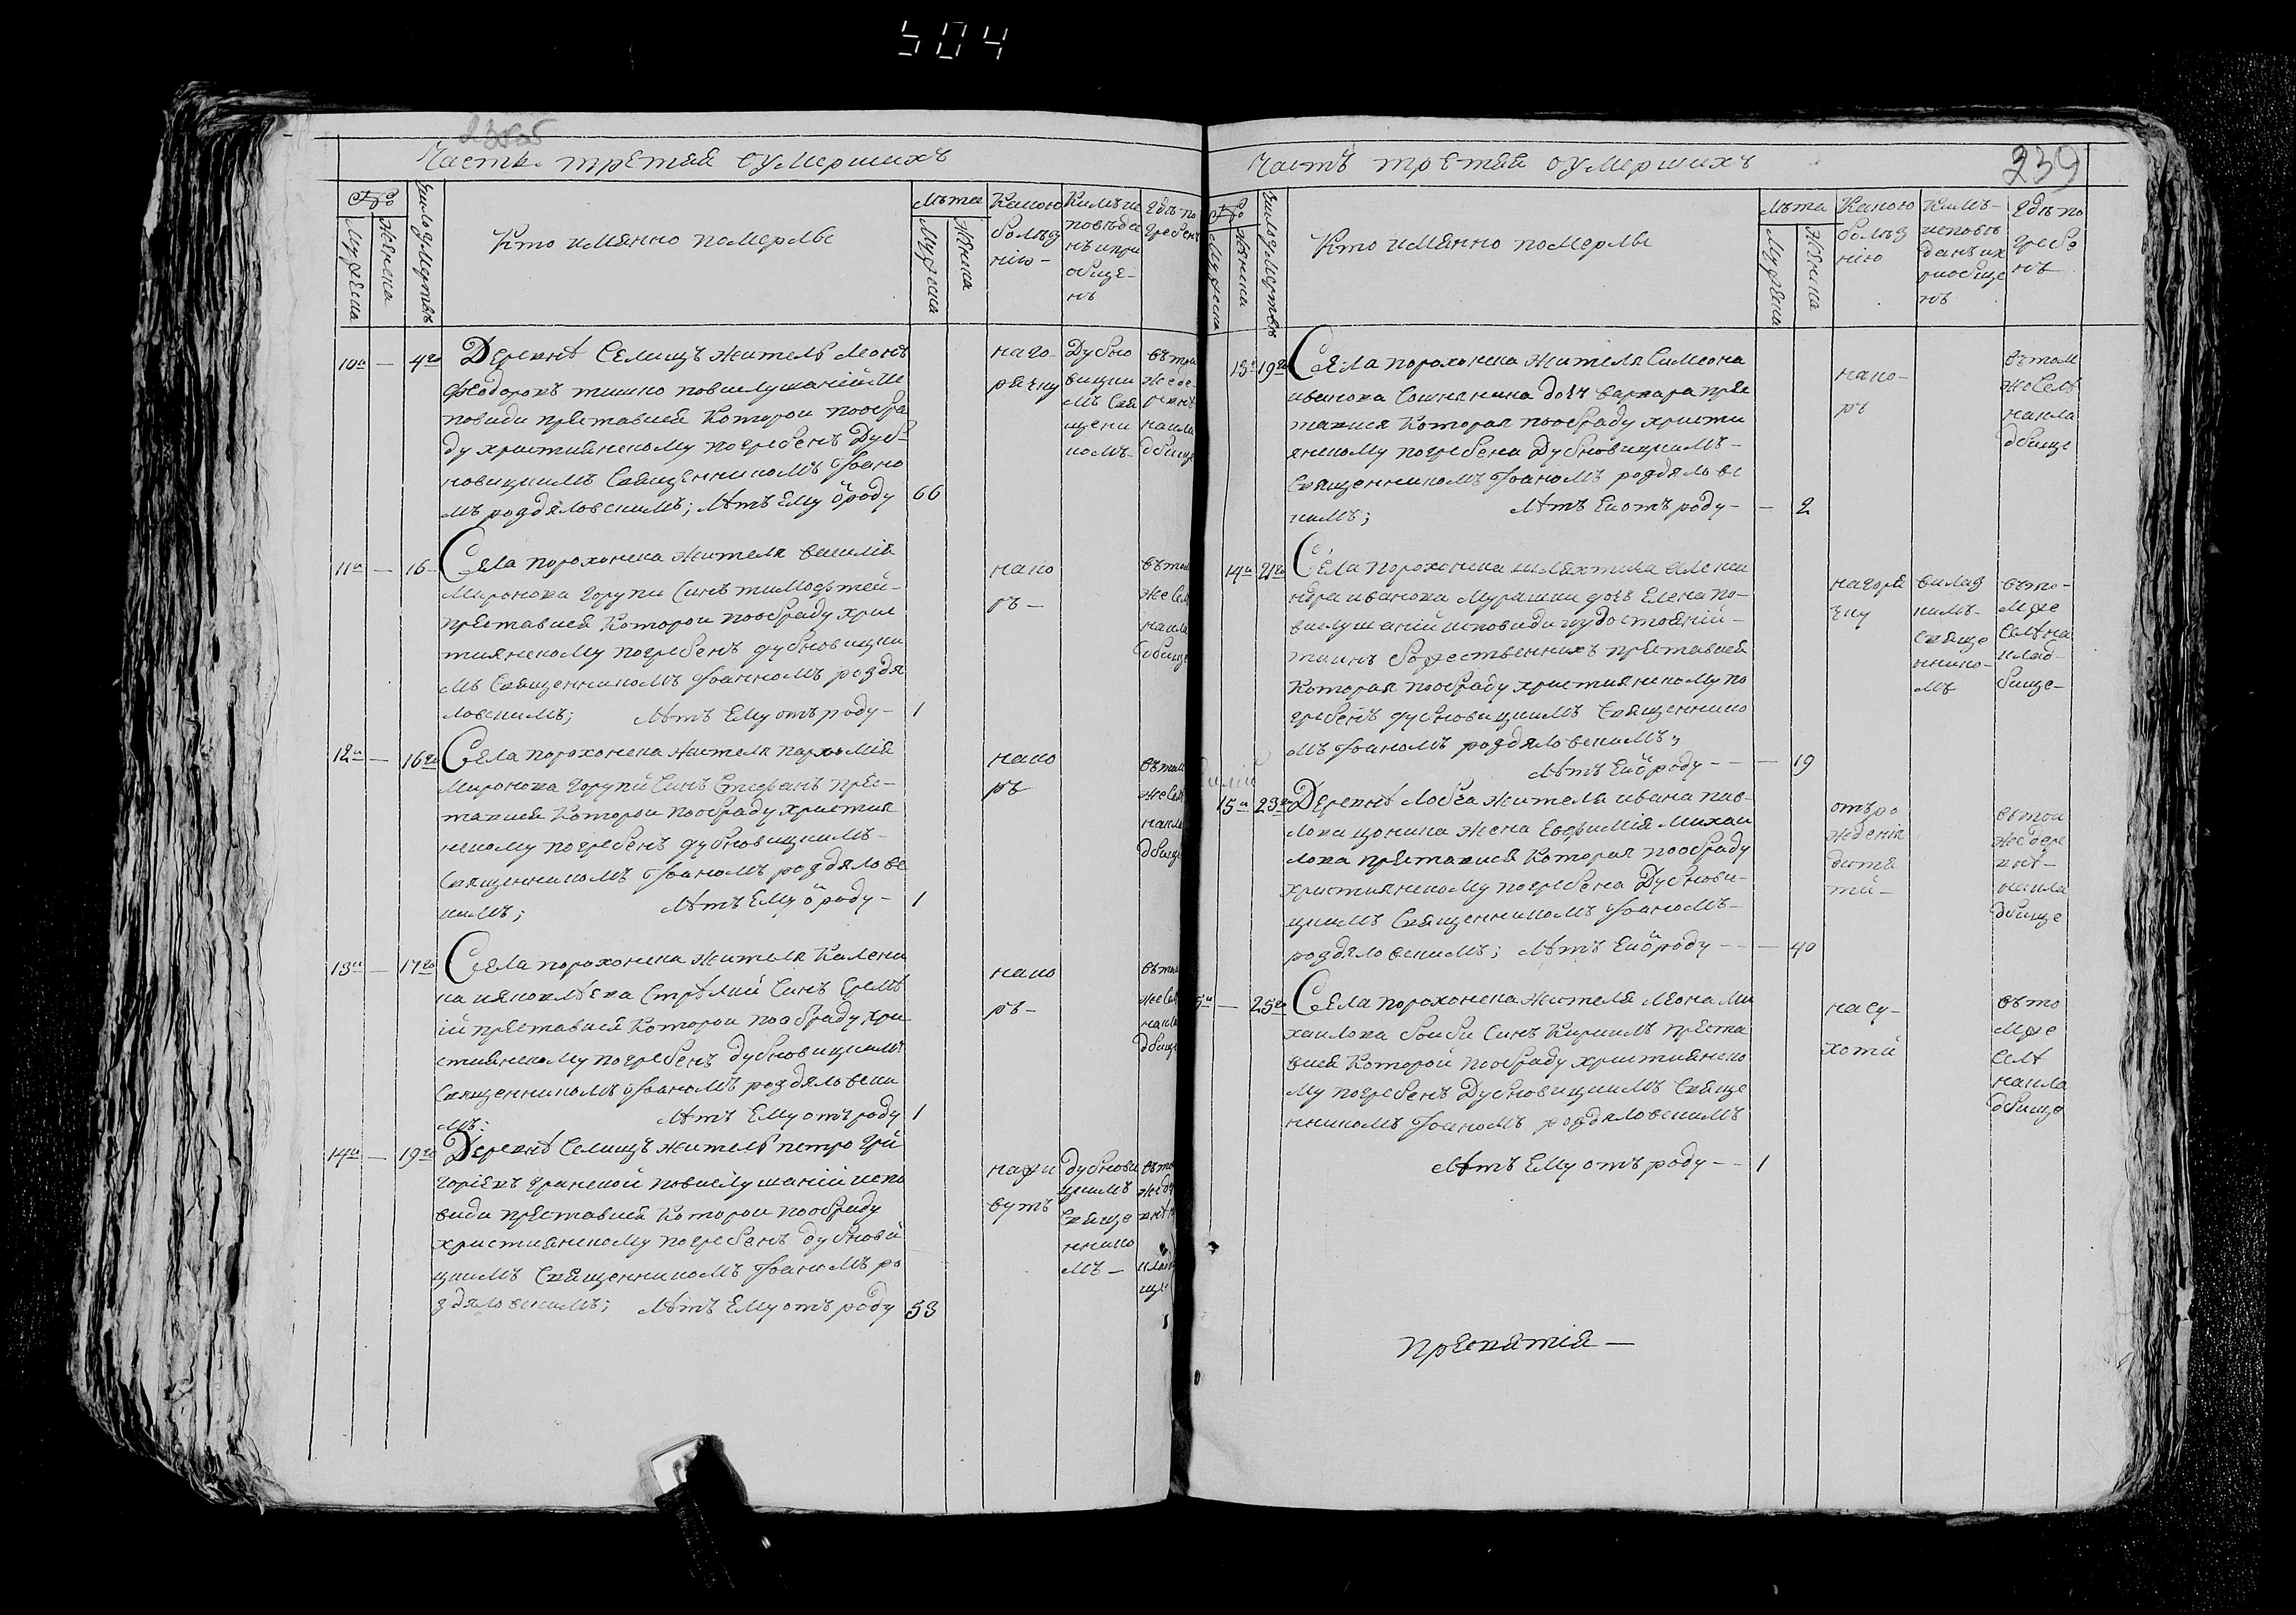 504
Часть третяя о умершихъ
№
Мужеска
Женска
Число умертвъ
Кто имянно померлъ
Лѣта
Мужеска
Женска
Какою
болѣз
нію-
Кимъ ис
повѣда
нъ и при
обще-
нъ
Гдѣ по
гребен
10а — 4го
Деревнѣ Селищъ житель Леонъ
Феодоровъ тишко повислушанійи Ис
повиди преставися которои пообра
ду християнскому погребенъ Дуб-
новицкимъ Священникомъ Іоано
мъ роздяловскимъ; Лѣтъ Ему ѿроду 66
наго-
рячку
Дубно
вицки
мъ Свя
щени
комъ-
вътои
же де-
ревнѣ
накла
дбище
11а — 16
Села порохонска жителя василія
Миронова горупи Синъ тимофтей-
преставися Которои пообраду хрис
тиянскому погребенъ дубновицки
мъ Священникомъ Іоанномъ роздя
ловскимъ; Лѣтъ Ему отъ роду- 1
нако
ръ-
вътом
же Селѣ
накла
дбище
12а — 16го
Села порохонска жителя пархомія
Миронова горупи Синъ Стефанъ прес-
тавися Которои пообраду христия
нскому погребенъ дубновицкимъ-
Священникомъ Іоаномъ роздяловс
кимъ; Лѣтъ Ему ѿроду- 1
нако
ръ
вътом
же Селѣ
накла
дбище
13а — 17го
Села порохонска жителя Калени
ка Стрѣлий Синъ Еремѣ
ій преставися Которои пообраду хри
стиянскому погребенъ дубновицкимъ
Священникомъ Іоаномъ роздяловски
мъ; Лѣтъ Ему отъ роду 1
нако
ръ-
вътом
же Селѣ
накла
дбище
14а — 19го
Деревнѣ Селищъ житель петро гри
горіевъ гранской повислушаній испо
види преставися Которои пообраду
християнскому погребенъ дубнови
цкимъ Священникомъ Іоаномъ ро
здяловскимъ; Лѣтъ Ему отъ роду 53
нажи
вутъ
дубнови
цкимъ
Свяще
ннико
мъ-
Часть третяя о умершихъ
239
№
Мужеска
Женска
Число умертвъ
Кто имянно померлъ
Лѣта
Мужеска
Женска
Какою
болѣз
нію
Кимъ-
исповѣ
данъ ип
риобще
нъ
Гдѣ по
гребе
нъ
13а 19го
Села порохонска жителя Симеона
иванова Сошнянина дочъ варвара прес
тавися Которая пообраду христи
янскому погребена Дубновицкимъ-
Священникомъ Іоаномъ роздяловс
кимъ; Лѣтъ Еи отъ роду- — 2
нако-
ръ
вътом
же Селѣ
накла
дбище
14а 21го
Села порохонска шляхтича алекса
ндра иванова Мурашки дочъ Елена по-
вислушаній исповиди иудостояній-
таинъ божественнихъ преставися
Которая пообраду християнскому по
гребенъ дубновицкимъ Священнико
мъ Іоаномъ роздяловскимъ;
Лѣтъ Ей ѿроду- — 19
нагоря
чку
свяще
ннико-
мъ
въто-
мже
Селѣ на
клад-
бище-
15а 23го
Деревнѣ Лобча жителя ивана пав-
лова цонина жена Евфимія Михаи
лова преставися Которая пообраду
християнскому погребена Дубнови-
цкимъ Священникомъ Іоаномъ-
роздяловскимъ; Лѣтъ Ей ѿроду- — 40
отъро
жденія
дитя
ти-
втои
же дере
внѣ-
накла
дбище
15а — 25го
Села порохонска жителя Леона Ми
хаилова бобби Синъ Кирилъ преста
вися Которой пообраду християнско
му погребенъ Дубновицкимъ Свяще
нникомъ Іоаномъ роздяловскимъ
Лѣтъ Ему отъ роду- - 1
насу-
хоти
въто
мже
Селѣ
накла
дбище